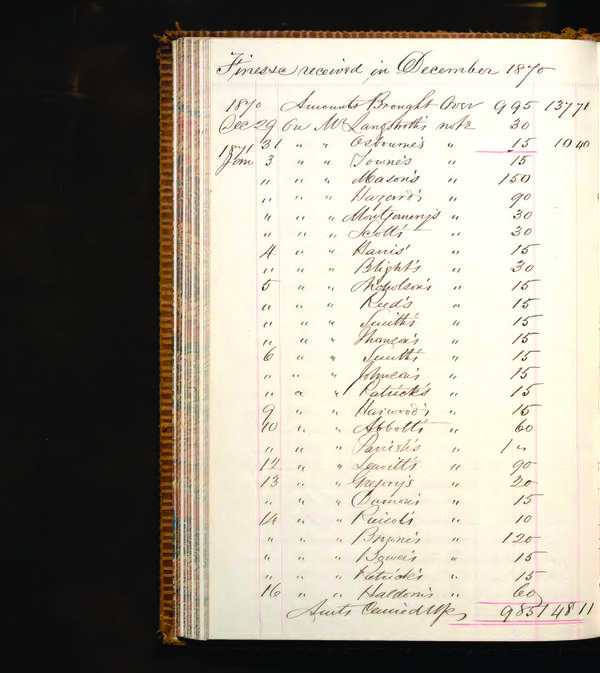 Fines &c received in December 1870
1870 Amounts Brought Over 995 137 71
Dec 29 On Mr Langstroth's note 30
31 " " Osbourne's " 15 10 40
1871
Jan 3 " " Towne's " 15
" " " Mason's " 150
" " " Hazard's " 90
" " " Montgomery's " 30
" " " Scott's " 30
4 " " Harris' " 15
" " " Blight's " 30
5 " " Nicholson's " 15
" " " Reed's " 15
" " " Smith's " 15
" " " Thomson's " 15
6 " " Smith's " 15
" " " Johnson's " 15
" " " Patrick's " 15
9 " " Harwood's " 15
10 " " Abbott's " 60
" " " Parrish's "
12 " " Leavitt's " 90
13 " " Gregory's " 20
" " " Damon's " 15
14 " " 10
" " " Browne's " 120
" " " Bower's " 15
" " " Patrick's " 15
16 " " Haldem's " 60
Amts Carried Up 985 148 11